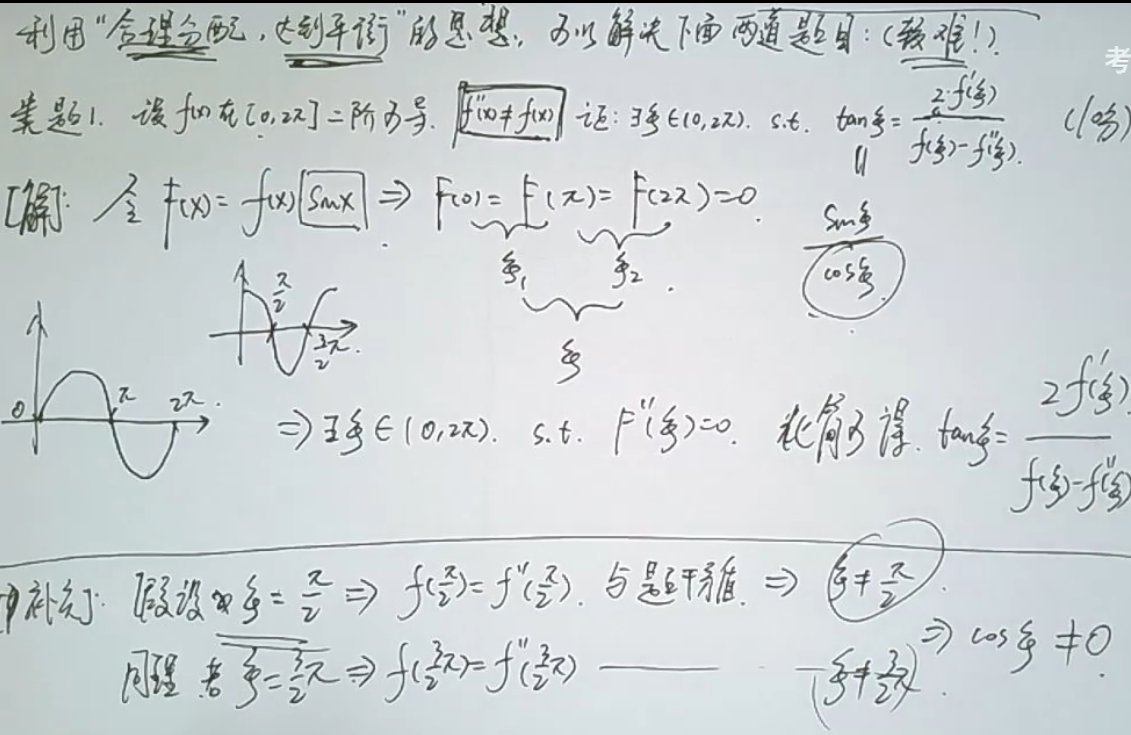 利用“合理分配，达到平衡”的思想，可以解决下面两道题目：(较难！).
考
类题1. 设f(x)在[0,2π]二阶可导. f''(x)≠f(x) 证：∃ξ∈(0,2π). s.t. tanξ = 2·f'(ξ) / f(ξ)-f''(ξ). (10分)
[解]: 令 F(x)= f(x) sinx ⇒ F(0)= F(π)= F(2π)=0.
sinξ / cosξ
ξ₁ ξ₂
ξ
π/2 3/2π.
0 π 2π.
⇒∃ξ∈(0,2π). s.t. F''(ξ)=0. 化简可得. tanξ= 2f'(ξ) / f(ξ)-f''(ξ)
补充]: 假设 ξ= π/2 ⇒ f(π/2)=f''(π/2). 与题干矛盾. ⇒ ξ≠π/2.
同理 若 ξ=3/2π ⇒ f(3/2π)=f''(3/2π) —— (ξ≠3/2π). ⇒ cosξ ≠0.